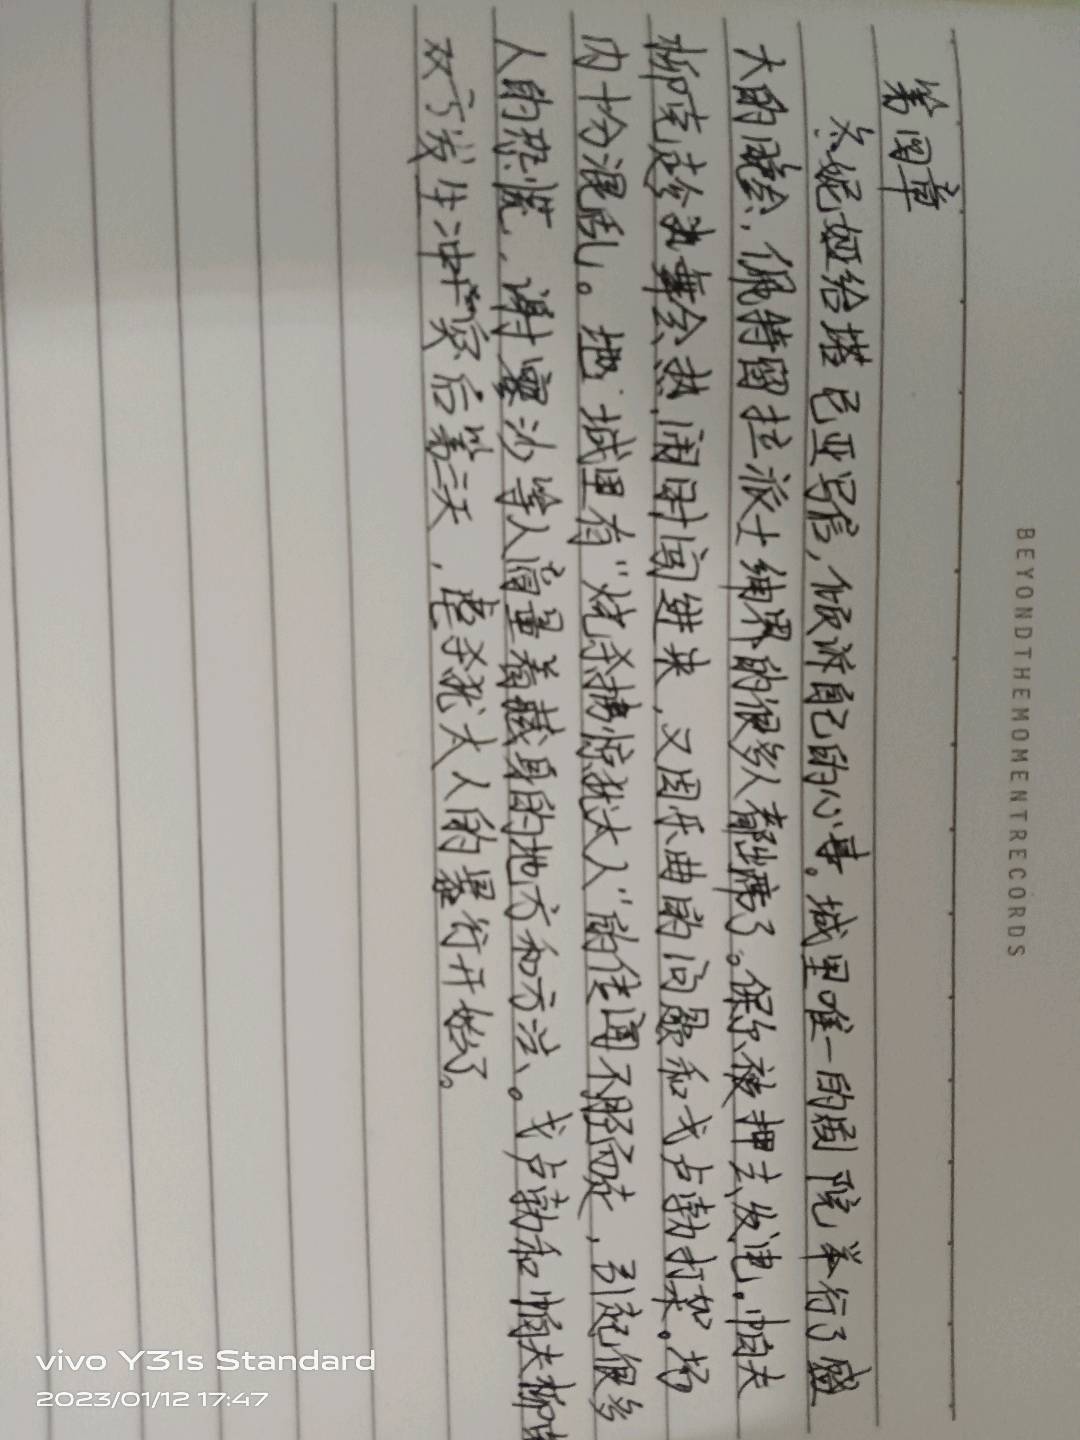 BEYONDTHEMOMENTRECORDS
第四章
冬妮娅给塔尼亚写信，倾诉自己的心事。城里唯一的剧院举行了盛
大的晚会，佩特留拉派士绅界的很多人都出席了。保尔被押去发电。帕夫
柳克趁舞会热闹时闯进来，又因乐曲的问题和戈卢勃打架。场
内十分混乱。城里有“烧杀掳掠犹太人”的传闻不胫而走，引起很多
人的恐慌，谢廖沙等人商量着藏身的地方和方法。戈卢勃和帕夫柳克
双方发生冲突后第三天，虐杀犹太人的暴行开始了。
vivo Y31s Standard
2023/01/12 17:47